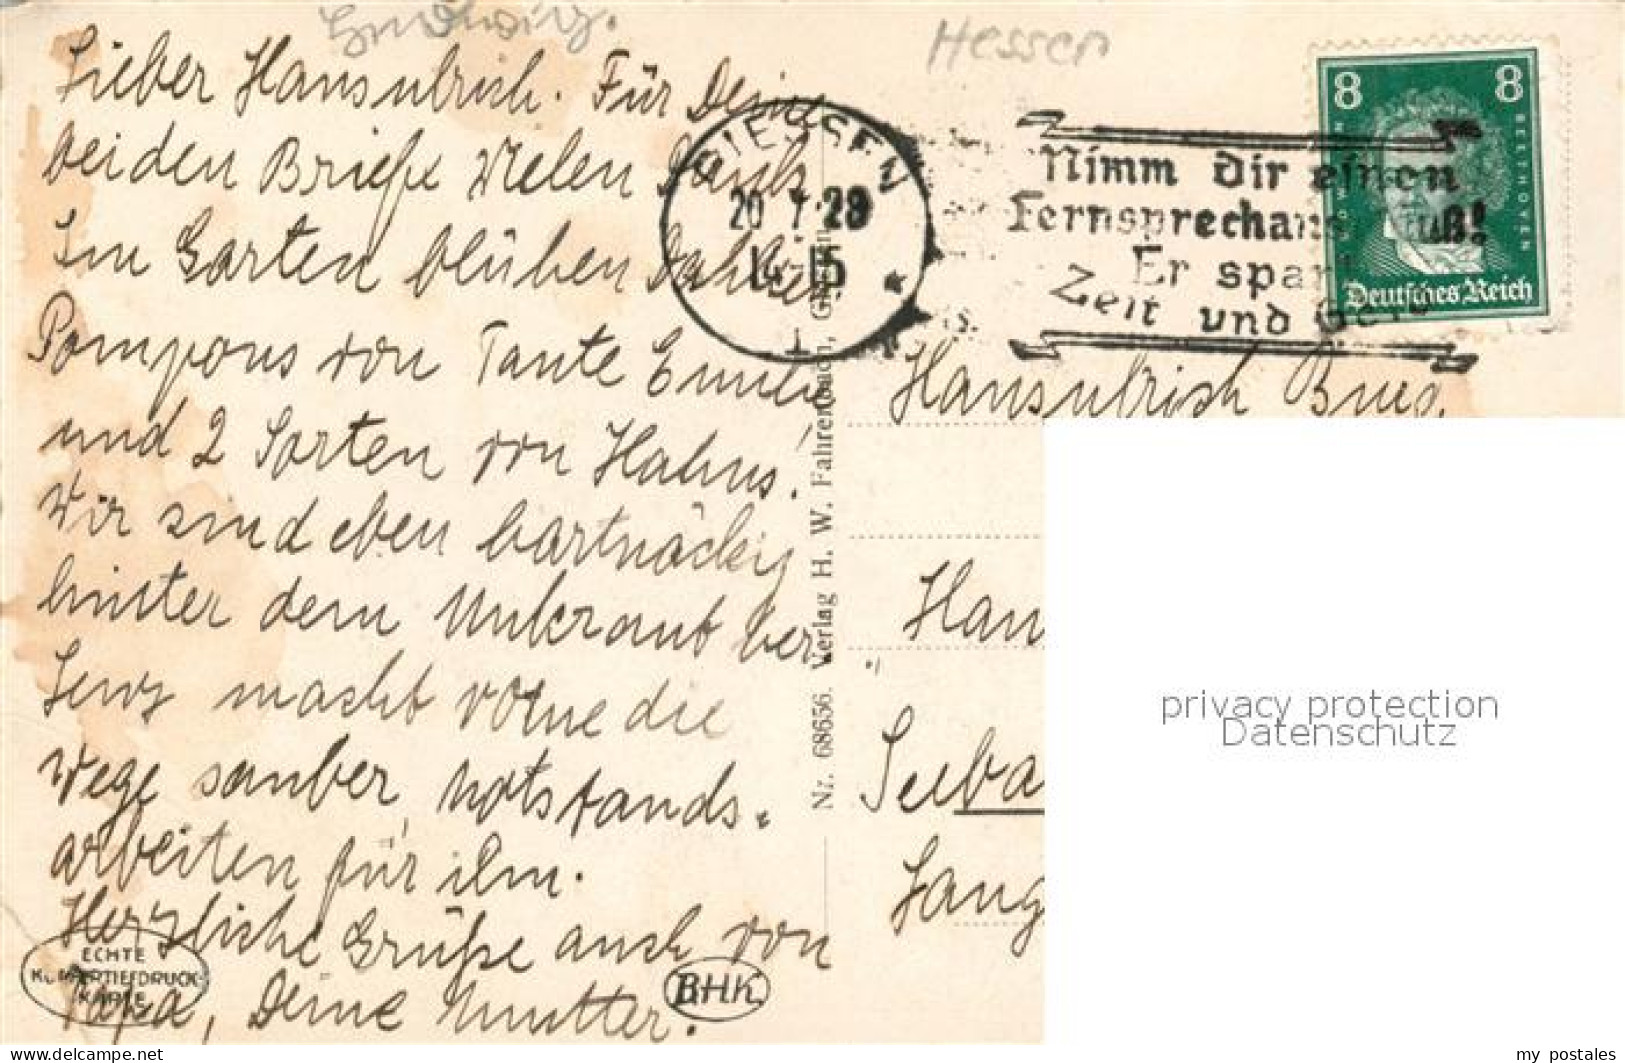 Hessen
Lieber Hansulrich. Für Deine
beiden Briefe Vielen Dank
Im Garten blühen Dahlien
Pompons von Tante Emilie
und 2 Sorten von Hahns.
Wir sind eben hartnäckig
hinter dem Unkraut her.
Lenz macht vorne die
Wege sauber, Notstands-
arbeiten für ihn.
Herzliche Grüße auch von
Papa, Deine Mutter.
GIESSEN
20 7 28
14-15
1
Nimm dir einen
Fernsprechanschluß!
Er spart
Zeit und Geld
8 8
BEETHOVEN
Deutsches Reich
Hansulrich Burg.
Han
Seeba
Lang
Nr. 68656. Verlag H. W. Fahrenbruch,
ECHTE
KUPFERTIEFDRUCK-
KARTE
BHK
privacy protection
Datenschutz
my postales